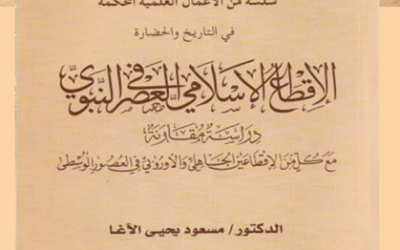 سلسلة من الأعمال العلمية المحكمة
في التاريخ والحضارة
الإقطاع الإسلامي في العصر النبوي
دراسة مقارنة
مع كل من الإقطاعين الجاهلي والأوروبي في العصور الوسطى
الدكتور / مسعود يحيى الآغا